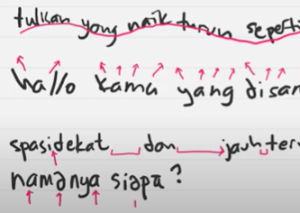 tulisan yang naik turun seperti
hallo kamu yang disan
spasi dekat dan jauh ter
namanya siapa?